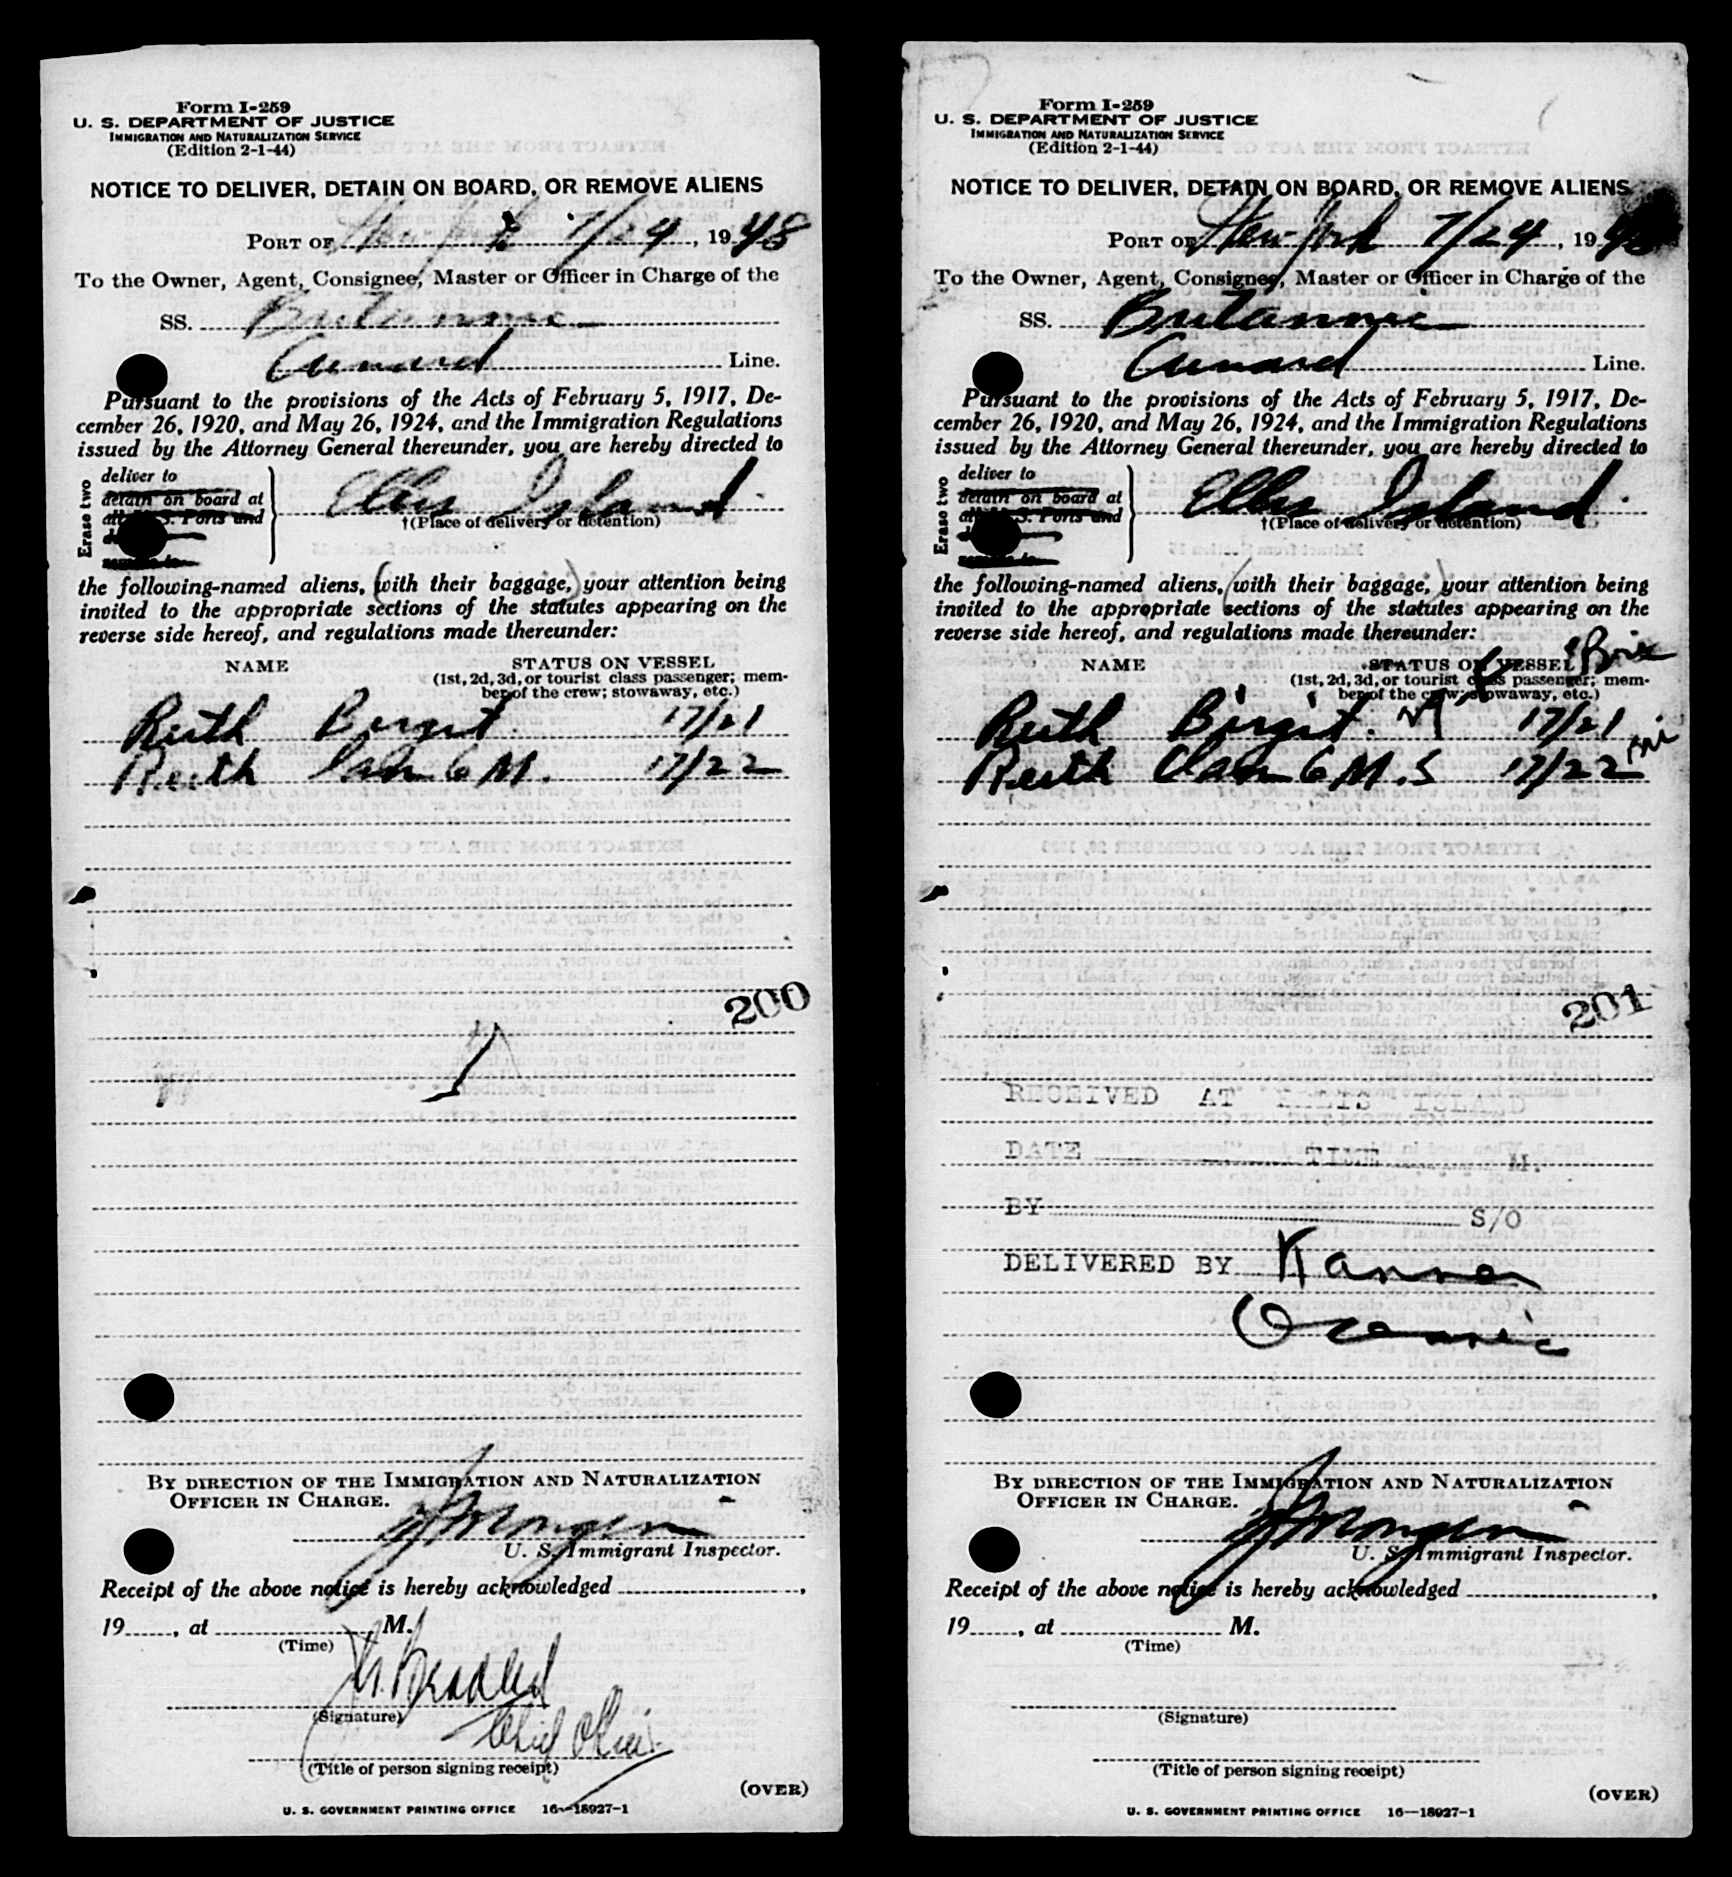 Form I-259
U. S. DEPARTMENT OF JUSTICE
IMMIGRATION AND NATURALIZATION SERVICE
(Edition 2-1-44)
NOTICE TO DELIVER, DETAIN ON BOARD, OR REMOVE ALIENS
PORT OF New York 7/24, 1948
To the Owner, Agent, Consignee, Master or Officer in Charge of the
SS. Britannic
Cunard Line.
Pursuant to the provisions of the Acts of February 5, 1917, De-
cember 26, 1920, and May 26, 1924, and the Immigration Regulations
issued by the Attorney General thereunder, you are hereby directed to
Erase two
deliver to
detain on board at
all U.S. Ports and
remove to
Ellis Island
†(Place of delivery or detention)
the following-named aliens, (with their baggage,) your attention being
invited to the appropriate sections of the statutes appearing on the
reverse side hereof, and regulations made thereunder:
NAME STATUS ON VESSEL
(1st, 2d, 3d, or tourist class passenger; mem-
ber of the crew; stowaway, etc.)
Reith Birgit. 17/21
Reith 6 M. 17/22
200
BY DIRECTION OF THE IMMIGRATION AND NATURALIZATION
OFFICER IN CHARGE.
U. S. Immigrant Inspector.
Receipt of the above notice is hereby acknowledged ,
19 , at M.
(Time)
(Signature)
Chief
(Title of person signing receipt)
(OVER)
U. S. GOVERNMENT PRINTING OFFICE 16—18927-1
Form I-259
U. S. DEPARTMENT OF JUSTICE
IMMIGRATION AND NATURALIZATION SERVICE
(Edition 2-1-44)
NOTICE TO DELIVER, DETAIN ON BOARD, OR REMOVE ALIENS
PORT OF New York 7/24, 1948
To the Owner, Agent, Consignee, Master or Officer in Charge of the
SS. Britannic
Cunard Line.
Pursuant to the provisions of the Acts of February 5, 1917, De-
cember 26, 1920, and May 26, 1924, and the Immigration Regulations
issued by the Attorney General thereunder, you are hereby directed to
Erase two
deliver to
detain on board at
all U.S. Ports and
remove to
Ellis Island
†(Place of delivery or detention)
the following-named aliens, (with their baggage,) your attention being
invited to the appropriate sections of the statutes appearing on the
reverse side hereof, and regulations made thereunder:
NAME STATUS ON VESSEL
(1st, 2d, 3d, or tourist class passenger; mem-
ber of the crew; stowaway, etc.)
Reith Birgit. 17/21
Reith 6 M. S 17/22
201
RECEIVED AT ELLIS ISLAND
DATE TIME M.
BY S/O
DELIVERED BY
BY DIRECTION OF THE IMMIGRATION AND NATURALIZATION
OFFICER IN CHARGE.
U. S. Immigrant Inspector.
Receipt of the above notice is hereby acknowledged ,
19 , at M.
(Time)
(Signature)
(Title of person signing receipt)
(OVER)
U. S. GOVERNMENT PRINTING OFFICE 16—18927-1